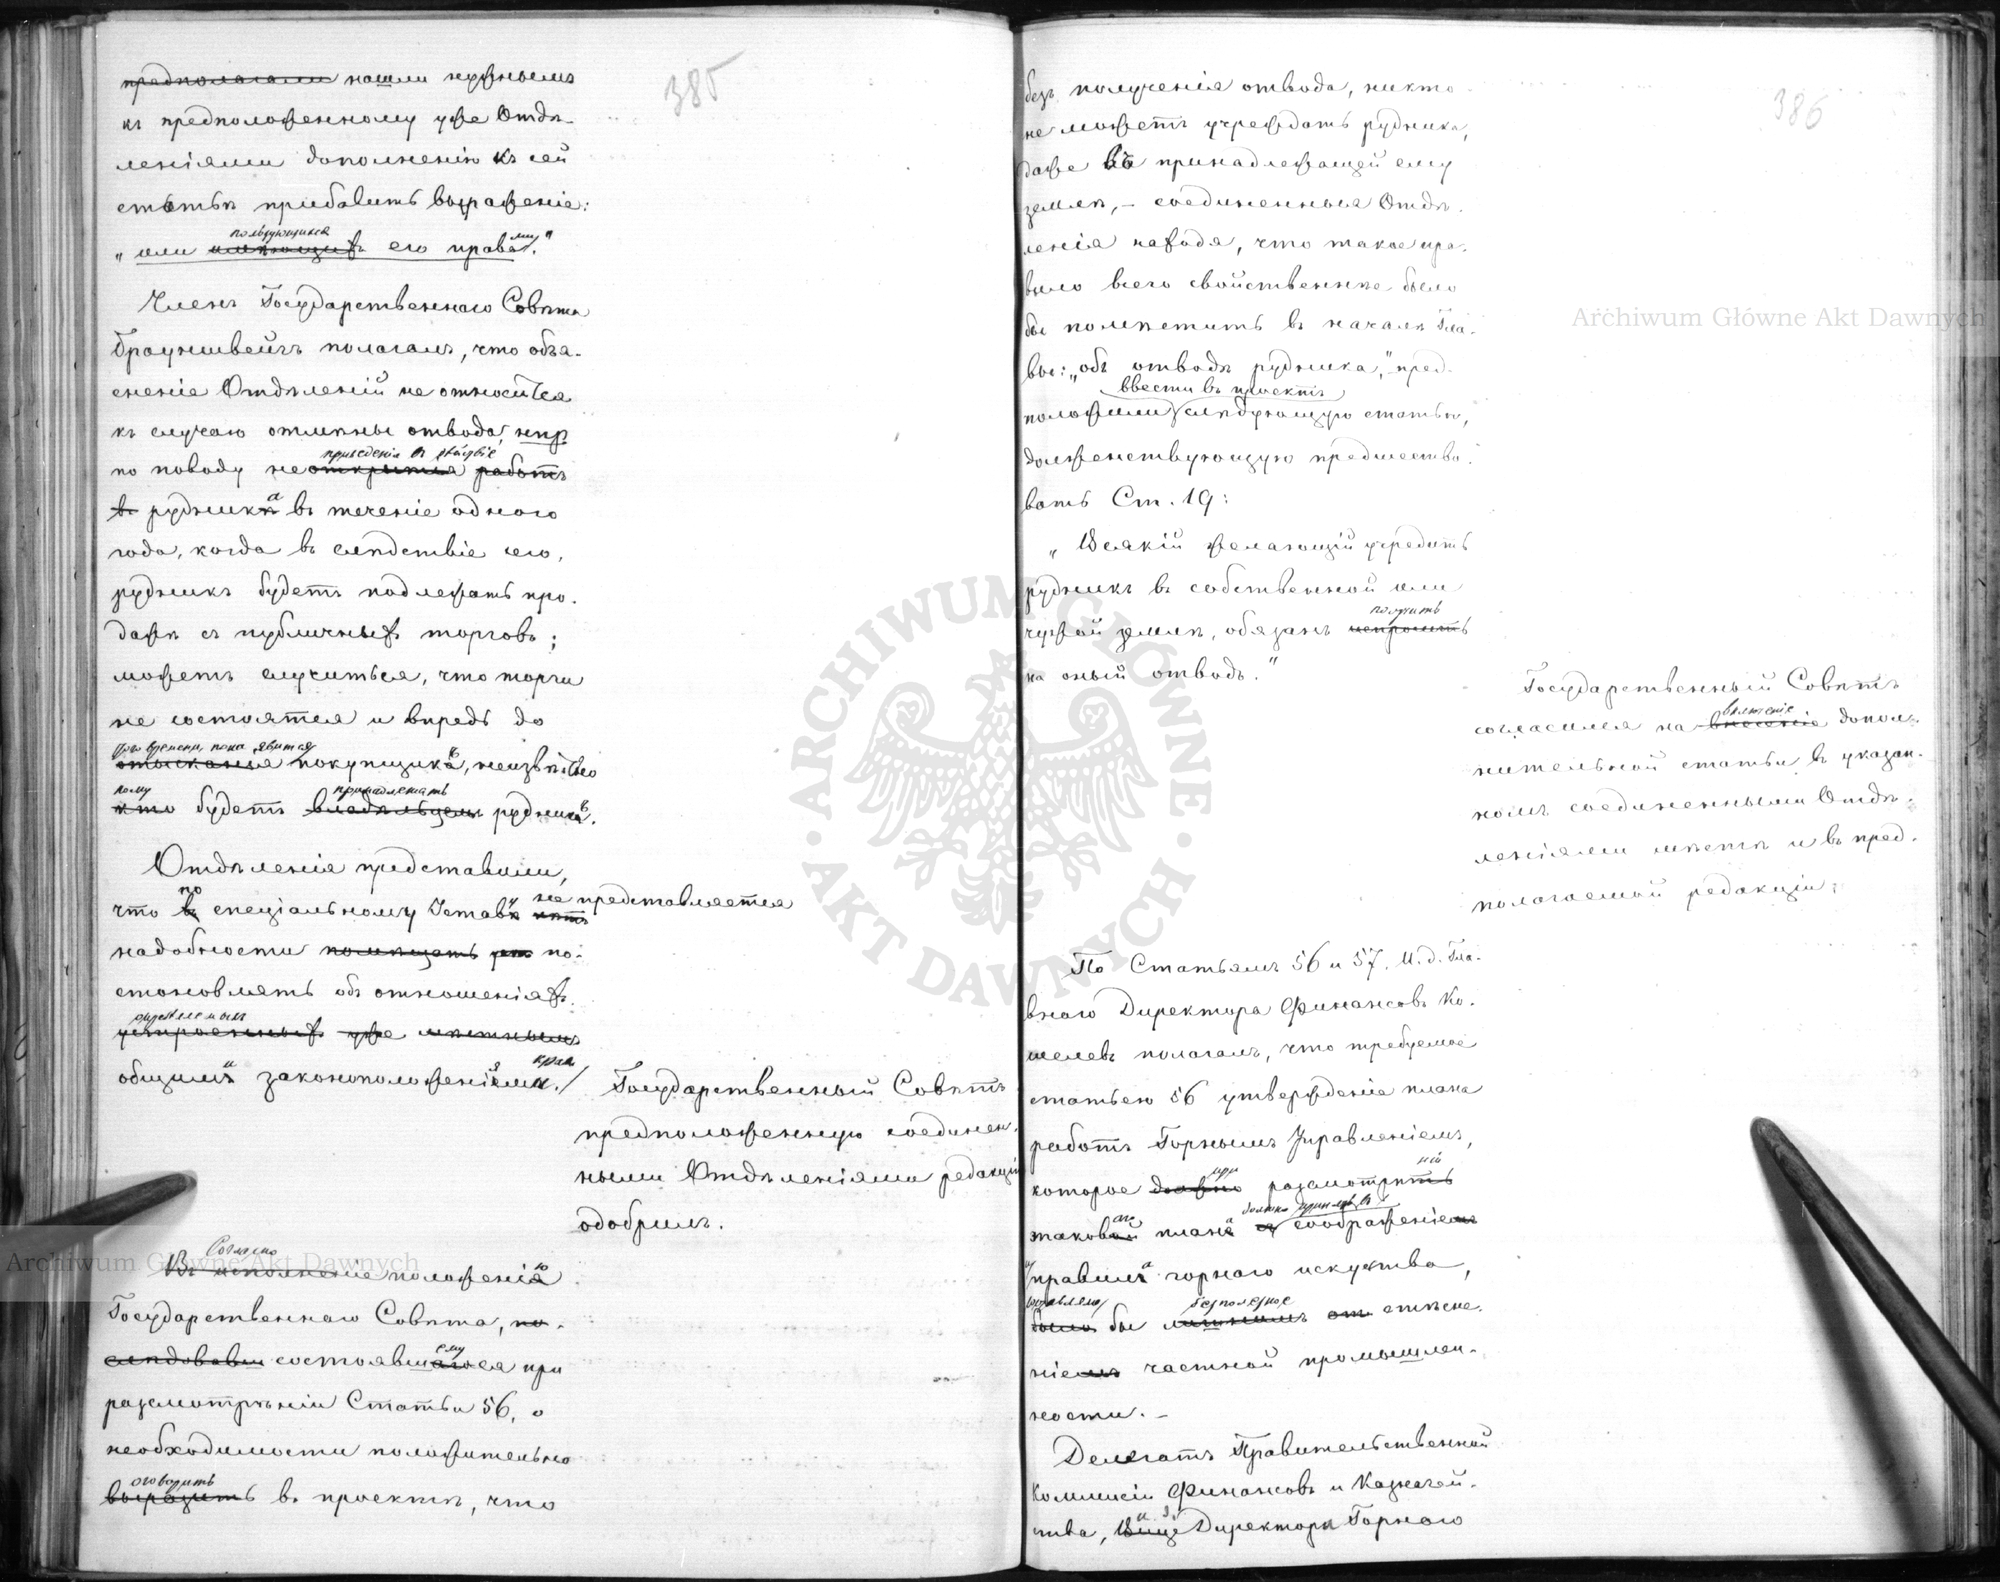 385
предполагали нашли нужнымъ
къ предположенному уже Отдѣ-
леніями дополненію къ сей
статьѣ прибавить выраженіе:
пользующихся
"или имѣющихъ его правами."
Членъ Государственнаго Совѣта
Брауншвейгъ полагалъ, что объя-
сненіе Отдѣленій не относится
къ случаю отмѣны отвода,
приведенія въ дѣйствіе
по поводу неоткрытія работъ
въ рудника въ теченіе одного
года, когда въ слѣдствіе сего,
рудникъ будетъ подлежать про-
дажѣ съ публичныхъ торговъ;
можетъ случиться, что торги
не состоятся и впредь до
того времени, пока явится
отысканія покупщикъ, неизвѣстно
кому принадлежать
кто будетъ владѣльцемъ рудникъ.
Отдѣленія представили,
по не представляется
что въ спеціальному Уставу нѣтъ
надобности помѣщать по-
становлять объ отношеніяхъ
опредѣлемыхъ
устроенныхъ уже мѣстными
края
общими законоположеніями.
Государственный Совѣтъ
предположенную соединен-
ными Отдѣленіями редакцію
одобрилъ.
Согласно
Въ исполненіе положенію
Государственнаго Совѣта, по-
ему
слѣдовавш состоявшагося при
разсмотрѣніи Статьи 56, о
необходимости положительно
оговорить
выразить въ проектѣ, что
386
безъ полученія отвода, никто
не можетъ учреждать рудника,
даже въ принадлежащей ему
землѣ, – соединенныя Отдѣ-
ленія находя, что такое пра-
вило всего свойственнѣе было
бы помѣстить въ началѣ Гла-
вы: "объ отводѣ рудника," пред-
ввести въ проектъ
положили слѣдующую статью,
долженствующую предшество-
вать Ст. 19:
"Всякій желающій учредить
рудникъ въ собственной или
получить
чужой землѣ, обязанъ испросить
на оный отводъ."
Государственный Совѣтъ
включеніе
согласился на внесеніе допол-
нительной статьи въ указан-
номъ соединенными Отдѣ-
леніями мѣстѣ и въ пред-
полагаемой редакціи.
По Статьямъ 56 и 57. И. д. Гла-
внаго Директора Финансовъ Ко-
шелевъ полагалъ, что требуемое
статьею 56 утвержденіе плана
работъ Горнымъ Управленіемъ,
при ніи
которое должно разсмотрѣть
таковаго плана съ соображеніемъ
правилъ горнаго искуства,
безполезное
было бы лишнимъ стѣсне-
ніемъ частной промышлен-
ности. –
Делегатъ Правительственной
Коммисіи Финансовъ и Казначей-
ства, Вице Директора Горнаго
Archiwum Główne Akt Dawnych
Archiwum Główne Akt Dawnych
ARCHIWUM GŁÓWNE · AKT DAWNYCH ·